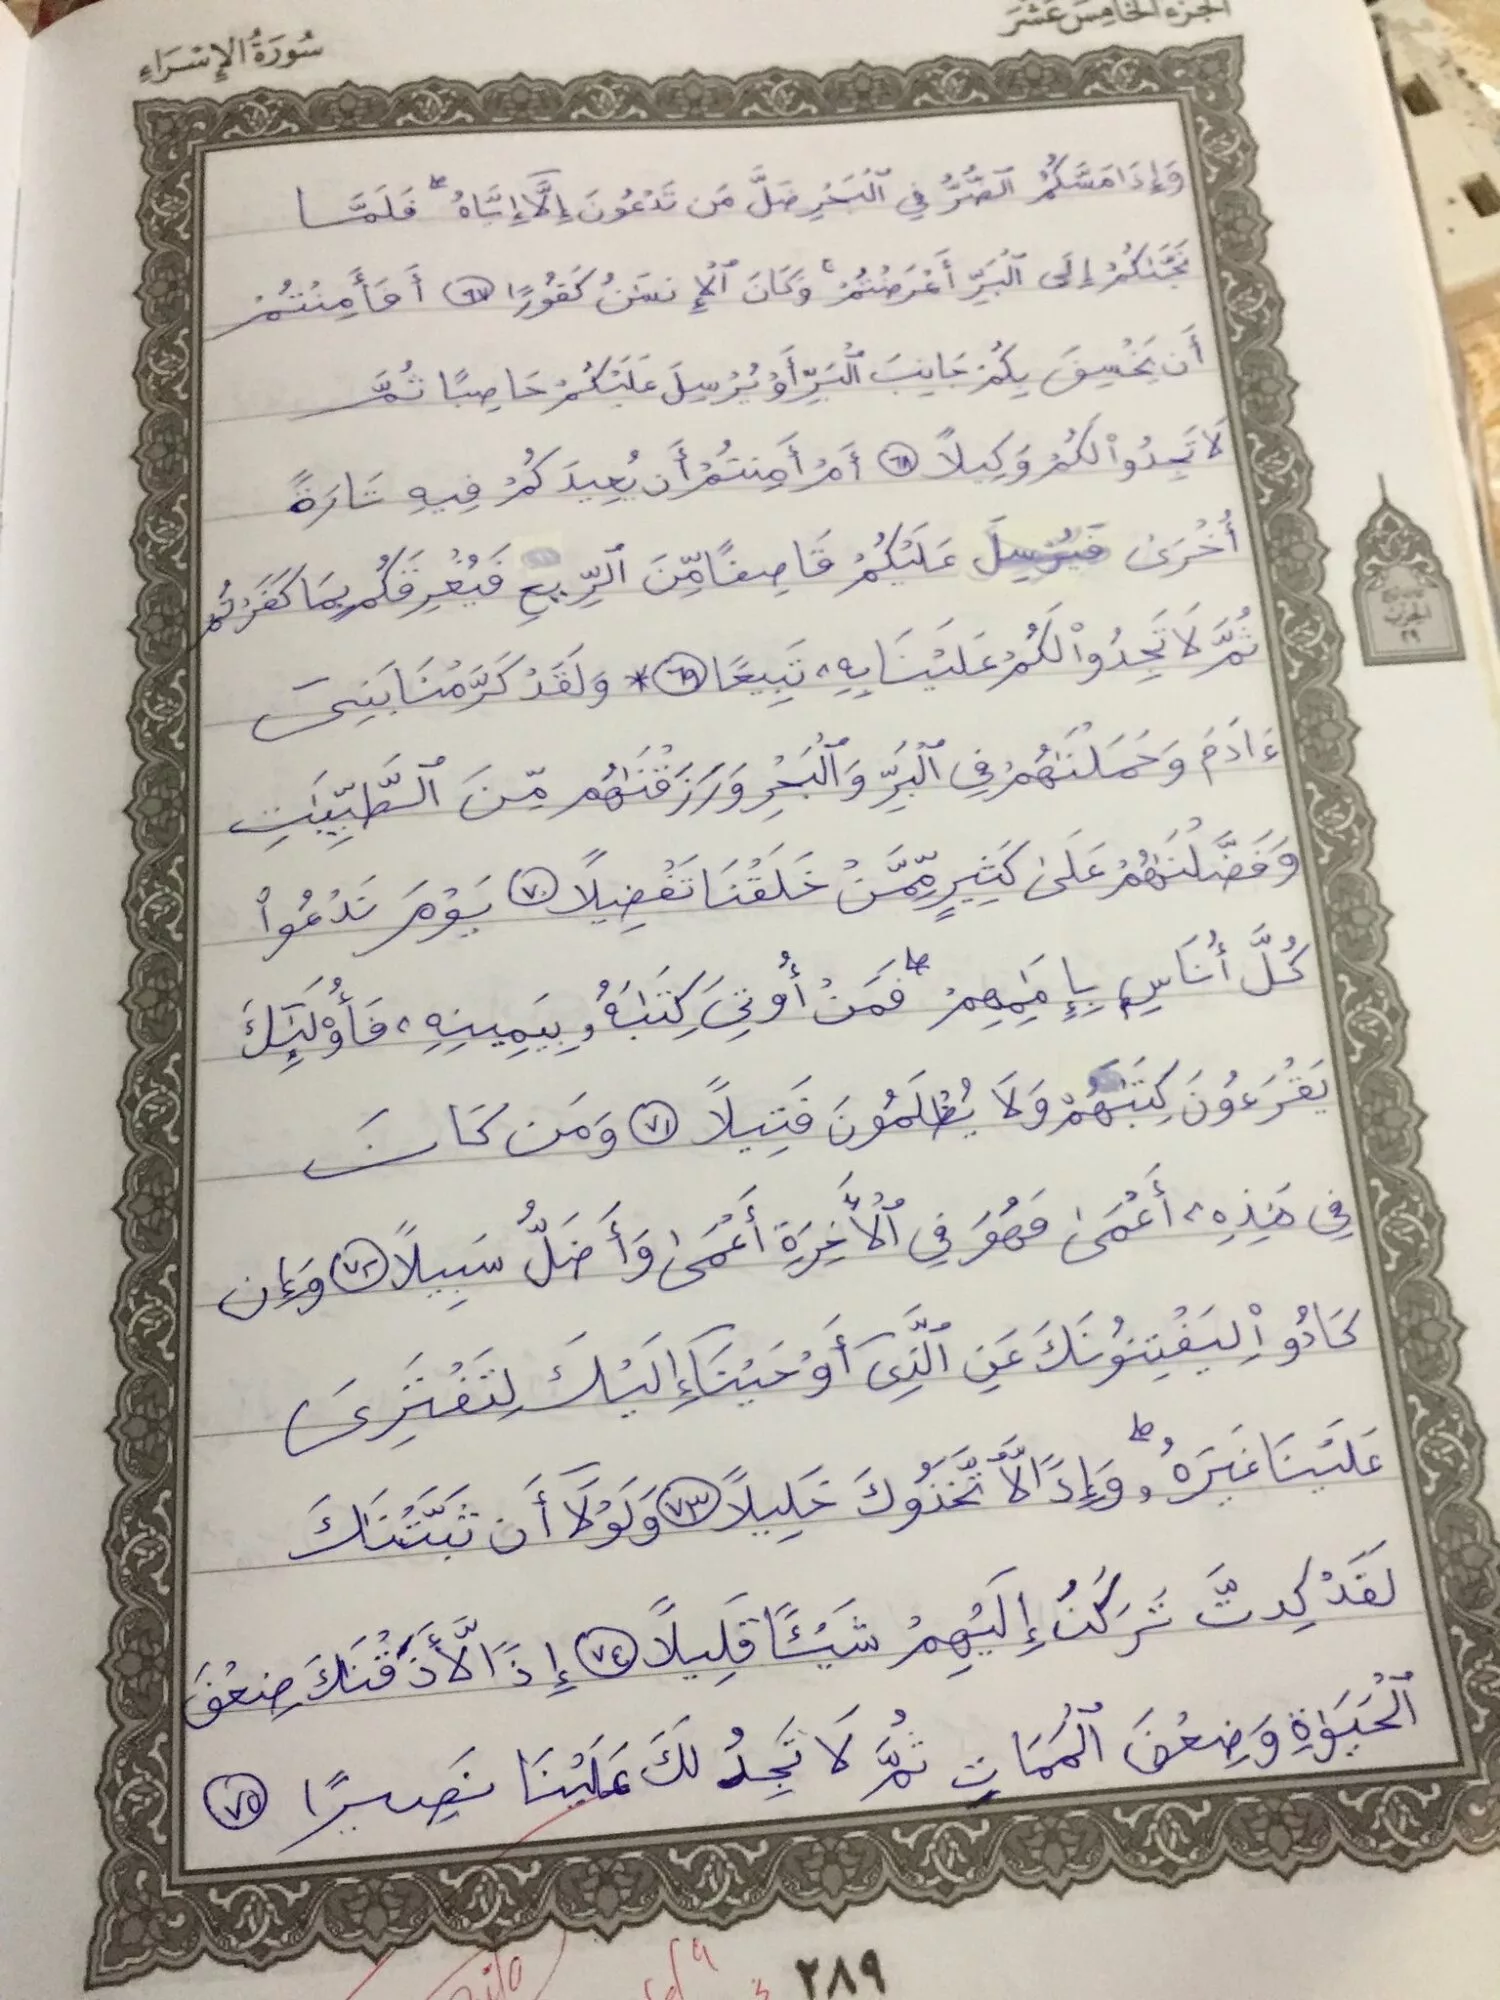 الجزء الخامس عشر
سُورَةُ الإِسْرَاءِ
وَإِذَا مَسَّكُمُ ٱلضُّرُّ فِي ٱلْبَحْرِ ضَلَّ مَن تَدْعُونَ إِلَّآ إِيَّاهُ ۖ فَلَمَّا
نَجَّىٰكُمْ إِلَى ٱلْبَرِّ أَعْرَضْتُمْ ۚ وَكَانَ ٱلْإِنسَٰنُ كَفُورًا ٦٧ أَفَأَمِنتُمْ
أَن يَخْسِفَ بِكُمْ جَانِبَ ٱلْبَرِّ أَوْ يُرْسِلَ عَلَيْكُمْ حَاصِبًا ثُمَّ
لَا تَجِدُوا۟ لَكُمْ وَكِيلًا ٦٨ أَمْ أَمِنتُمْ أَن يُعِيدَكُمْ فِيهِ تَارَةً
أُخْرَىٰ فَيُرْسِلَ عَلَيْكُمْ قَاصِفًا مِّنَ ٱلرِّيحِ فَيُغْرِقَكُم بِمَا كَفَرْتُمْ
ثُمَّ لَا تَجِدُوا۟ لَكُمْ عَلَيْنَا بِهِۦ تَبِيعًا ٦٩ * وَلَقَدْ كَرَّمْنَا بَنِىٓ
ءَادَمَ وَحَمَلْنَٰهُمْ فِي ٱلْبَرِّ وَٱلْبَحْرِ وَرَزَقْنَٰهُم مِّنَ ٱلطَّيِّبَٰتِ
وَفَضَّلْنَٰهُمْ عَلَىٰ كَثِيرٍ مِّمَّنْ خَلَقْنَا تَفْضِيلًا ٧٠ يَوْمَ نَدْعُوا۟
كُلَّ أُنَاسٍ بِإِمَٰمِهِمْ ۖ فَمَنْ أُوتِىَ كِتَٰبَهُۥ بِيَمِينِهِۦ فَأُو۟لَٰٓئِكَ
يَقْرَءُونَ كِتَٰبَهُمْ وَلَا يُظْلَمُونَ فَتِيلًا ٧١ وَمَن كَانَ
فِي هَٰذِهِۦٓ أَعْمَىٰ فَهُوَ فِي ٱلْأَخِرَةِ أَعْمَىٰ وَأَضَلُّ سَبِيلًا ٧٢ وَإِن
كَادُوا۟ لَيَفْتِنُونَكَ عَنِ ٱلَّذِىٓ أَوْحَيْنَآ إِلَيْكَ لِتَفْتَرِىَ
عَلَيْنَا غَيْرَهُۥ ۖ وَإِذًا لَّٱتَّخَذُوكَ خَلِيلًا ٧٣ وَلَوْلَآ أَن ثَبَّتْنَٰكَ
لَقَدْ كِدتَّ تَرْكَنُ إِلَيْهِمْ شَيْـًٔا قَلِيلًا ٧٤ إِذًا لَّأَذَقْنَٰكَ ضِعْفَ
ٱلْحَيَوٰةِ وَضِعْفَ ٱلْمَمَاتِ ثُمَّ لَا تَجِدُ لَكَ عَلَيْنَا نَصِيرًا ٧٥
الحزب
٢٩
٢٨٩